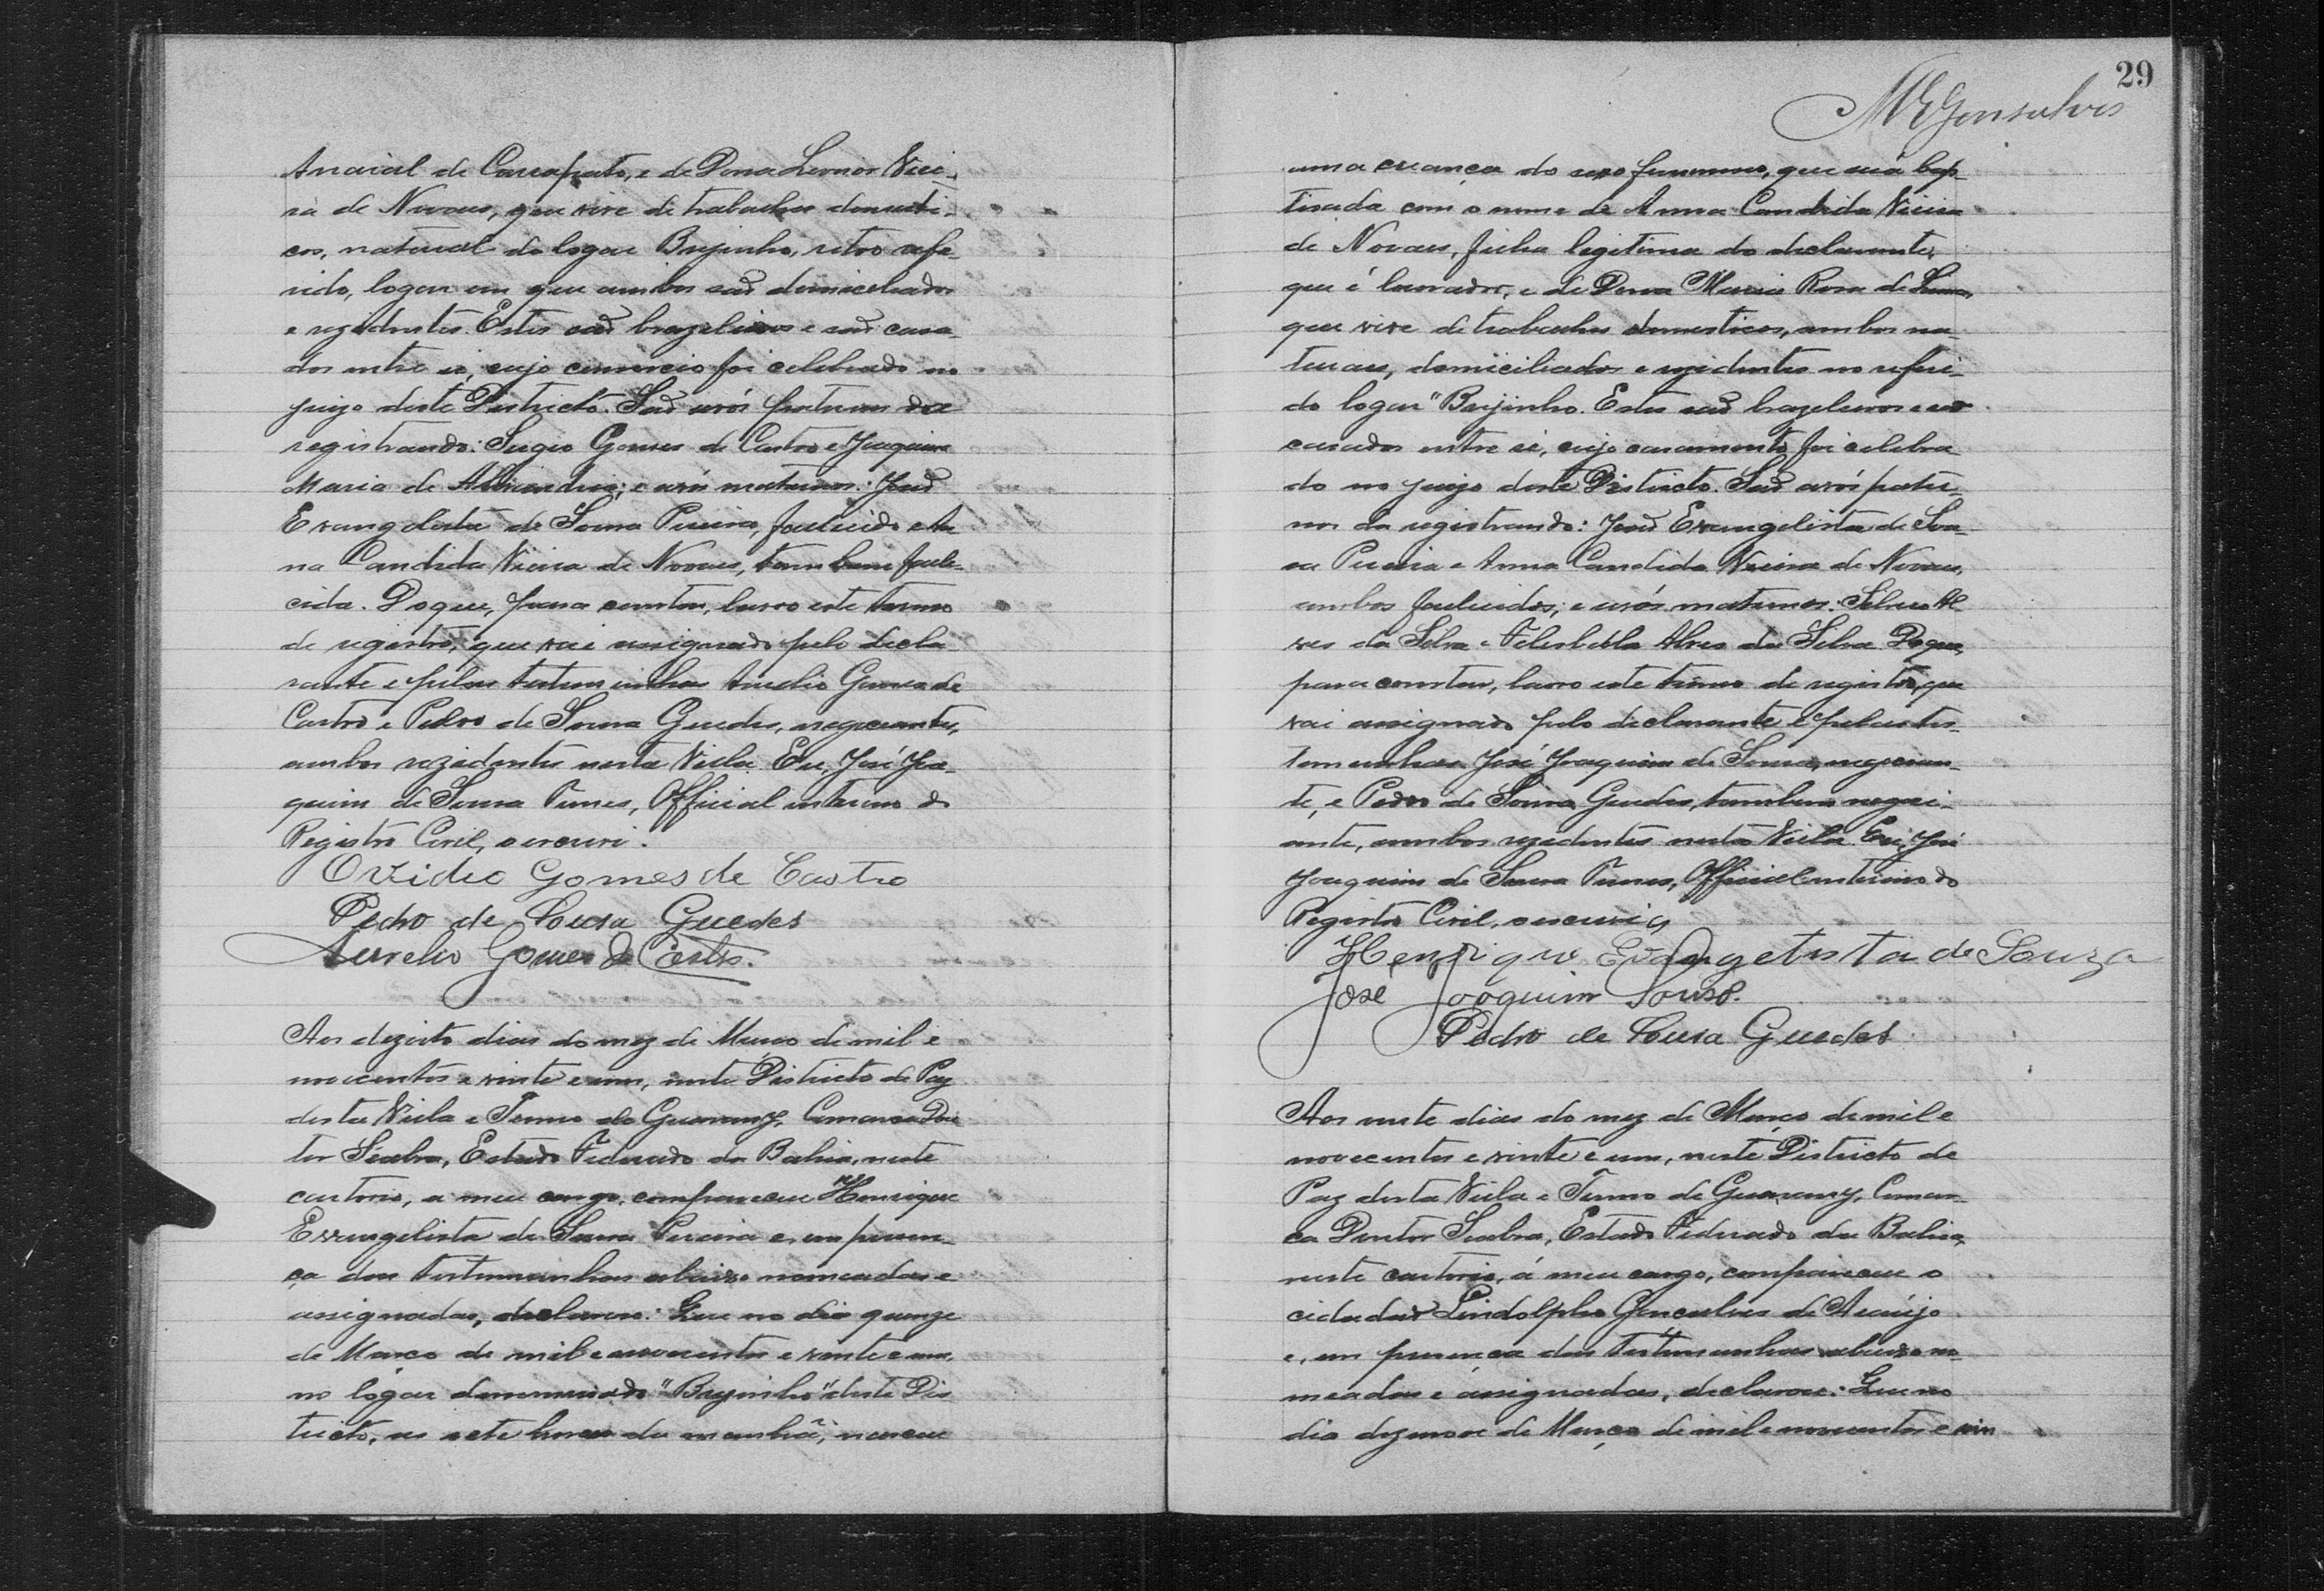 Arraial de Carrapato, e de Dona Leonor Viei-
ra de Novaes, que vive de trabalhos domesti-
cos, natural do logar Brejinho, retro refe-
rido, logar em que ambos são domiciliados
e rezidentes. Estes são brazileiros e são casa-
dos entre si, cujo consorcio foi celebrado no
juizo deste Districto. São avós paternos do
registrando: Sergio Gomes de Castro e Joaquina
Maria de e avós maternos: João
Evangelista de Sousa Pereira, fallecido e An-
na Candida Vieira de Novaes, tambem falle-
cida. Do que, para constar, lavro este termo
de registro, que vai assignado pelo decla-
rante e pelas testemunhas Aurelio Gomes de
Castro e Pedro de Sousa Guedes, negociantes,
ambos rezidentes nesta Villa. Eu, José Joa-
quim de Sousa Tunes, Official interino do
Registro Civil, o escrevi.
Ovidio Gomes de Castro
Pedro de Sousa Guedes
Aurelio Gomes de Castro.
Aos dezoito dias do mez de Março de mil e
novecentos e vinte e um, neste Districto de Paz
desta Villa e Termo de Guarany, Comarca Dou-
tor Seabra, Estado Federado da Bahia, neste
cartorio, a meu cargo, compareceu Henrique
Evangelista de Sousa Pereira e, em presen-
ça das testemunhas abaixo nomeadas e
assignadas, declarou: Que no dia quinze
de Março de mil e novecentos e vinte e um,
no logar denominado "Brejinho" deste Dis-
tricto, as sete horas da manhã, nasceu
29
MEGonsalves
uma creança do sexo feminino, que será bap-
tisada com o nome de Anna Candida Vieira
de Novaes, filha legitima do declarante,
que é lavrador, e de Dona Maria Rosa de
que vive de trabalhos domesticos, ambos na-
turaes, domiciliados e rezidentes no referi-
do logar "Brejinho. Estes são brazileiros e são
casados entre si, cujo casamento foi celebra-
do no juizo deste Districto. São avós pater-
nos da registrando: João Evangelista de Sou-
sa Pereira e Anna Candida Vieira de Novaes,
ambos fallecidos; e avós maternos: Al-
ves da Silva e Alves da Silva. Do que,
para constar, lavro este termo de registro, que
vai assignado pelo declarante e pelas tes-
temunhas José Joaquim de Sousa, negocian-
te, e Pedro de Sousa Guedes, tambem negoci-
ante, ambos rezidentes nesta Villa. Eu, José
Joaquim de Sousa Tunes, Official interino do
Registro Civil, o escrevi.
Henrique Evangelista de Souza
José Joaquim Sousa.
Pedro de Sousa Guedes
Aos vinte dias do mez de Março de mil e
novecentos e vinte e um, neste Districto de
Paz desta Villa e Termo de Guarany, Comar-
ca Doutor Seabra, Estado Federado da Bahia,
neste cartorio, á meu cargo, compareceu o
cidadão Lindolpho Goncalves de Araújo
e, em presença das testemunhas abaixo no-
meadas e assignadas, declarou: Que no
dia dezenove de Março de mil e novecentos e vin